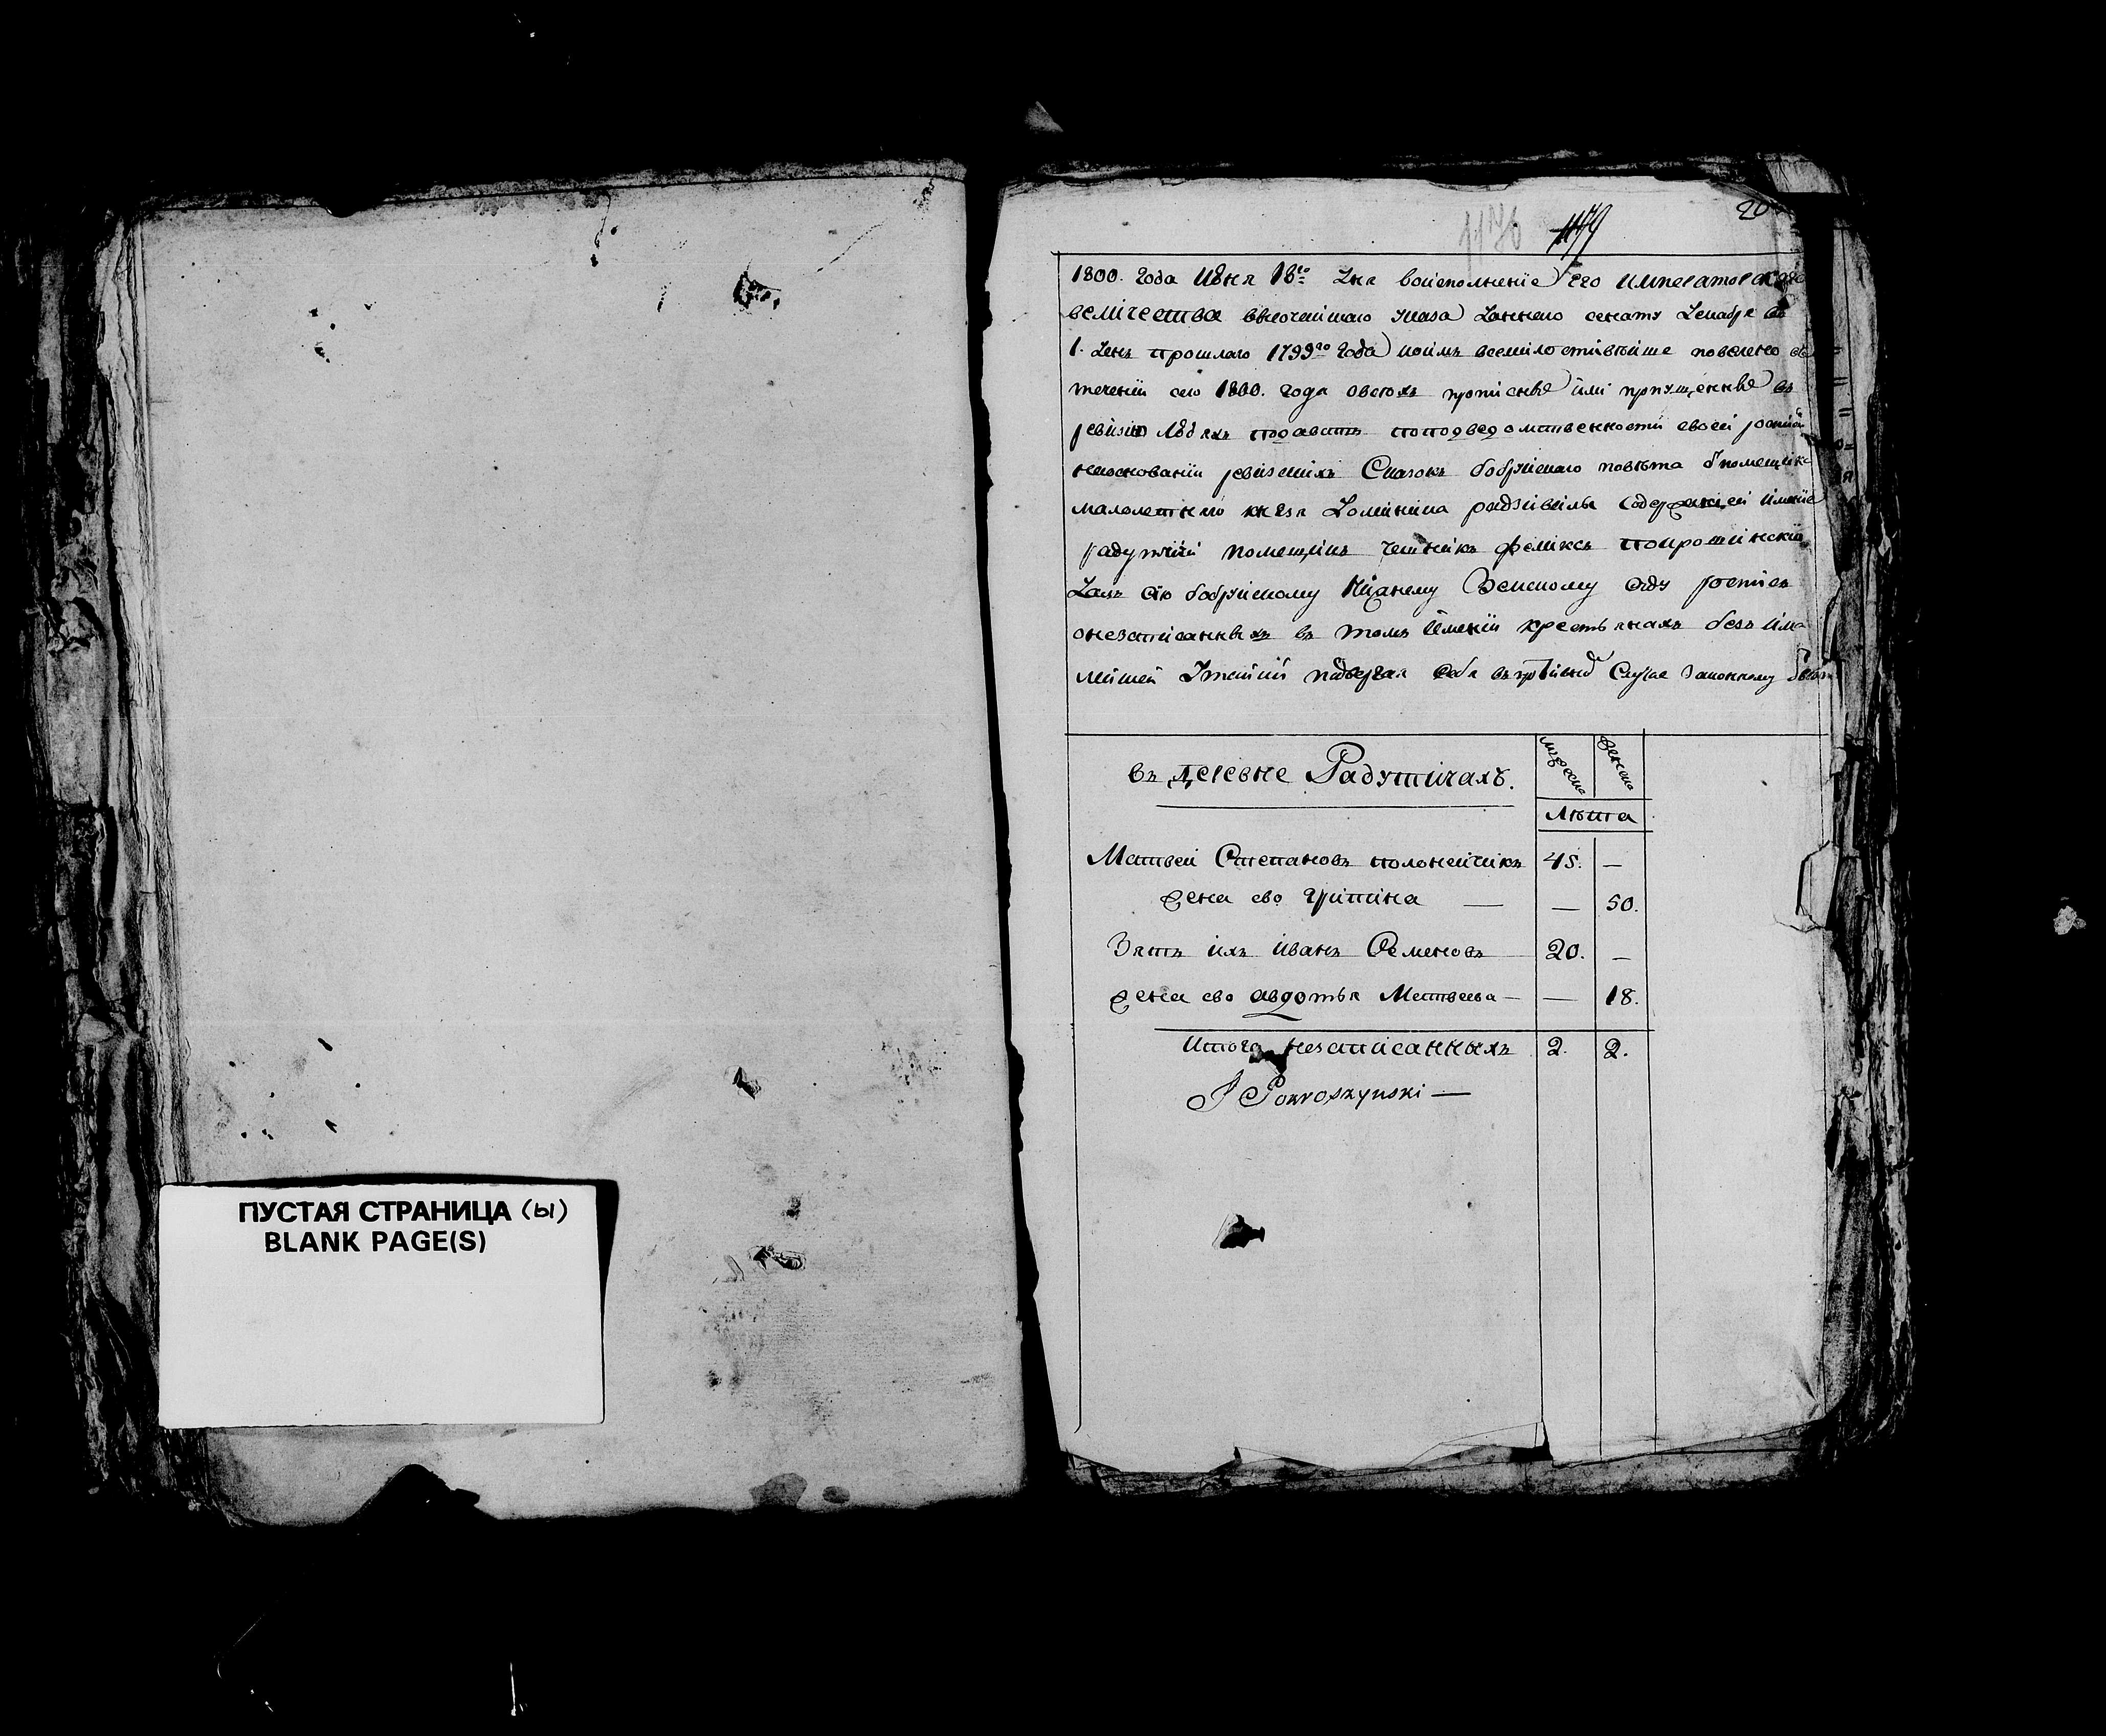 ПУСТАЯ СТРАНИЦА (ы)
BLANK PAGE(S)
20
1176 1179
1800. года Июня 18го дня воисполнение его императорскаго
величества высочаишаго указа даннаго сенату декабря въ
1. день прошлаго 1799го года коимъ всемилостивѣише повелено въ
течении сего 1800. года овсехъ прописныхъ или пропущенныхъ въ
ревизию людяхъ подавать поподведомственности своей
наоснованіи ревизскихъ Сказокъ бобруискаго повѣта помещика
малолетнаго князя Доминика радзивила содержащей имѣние
радутичи помещикъ чешникъ феликсъ покрошинский
Далъ сию бобруискому Нижнему Земскому суду роспись
онезаписанныхъ въ томъ имении крестьянахъ безъ
подвергая себя Случае Законному
въ деревне Радутичахъ.
мужеска женска
Лѣта
Матвеи Степановъ полонейчикъ 45. —
жена ево Грипина — — 50.
Зять ихъ иванъ Семеновъ 20. —
жена ево авдотья Матвеева — — 18.
Итого незаписанныхъ 2. 2.
Pokroszynski —